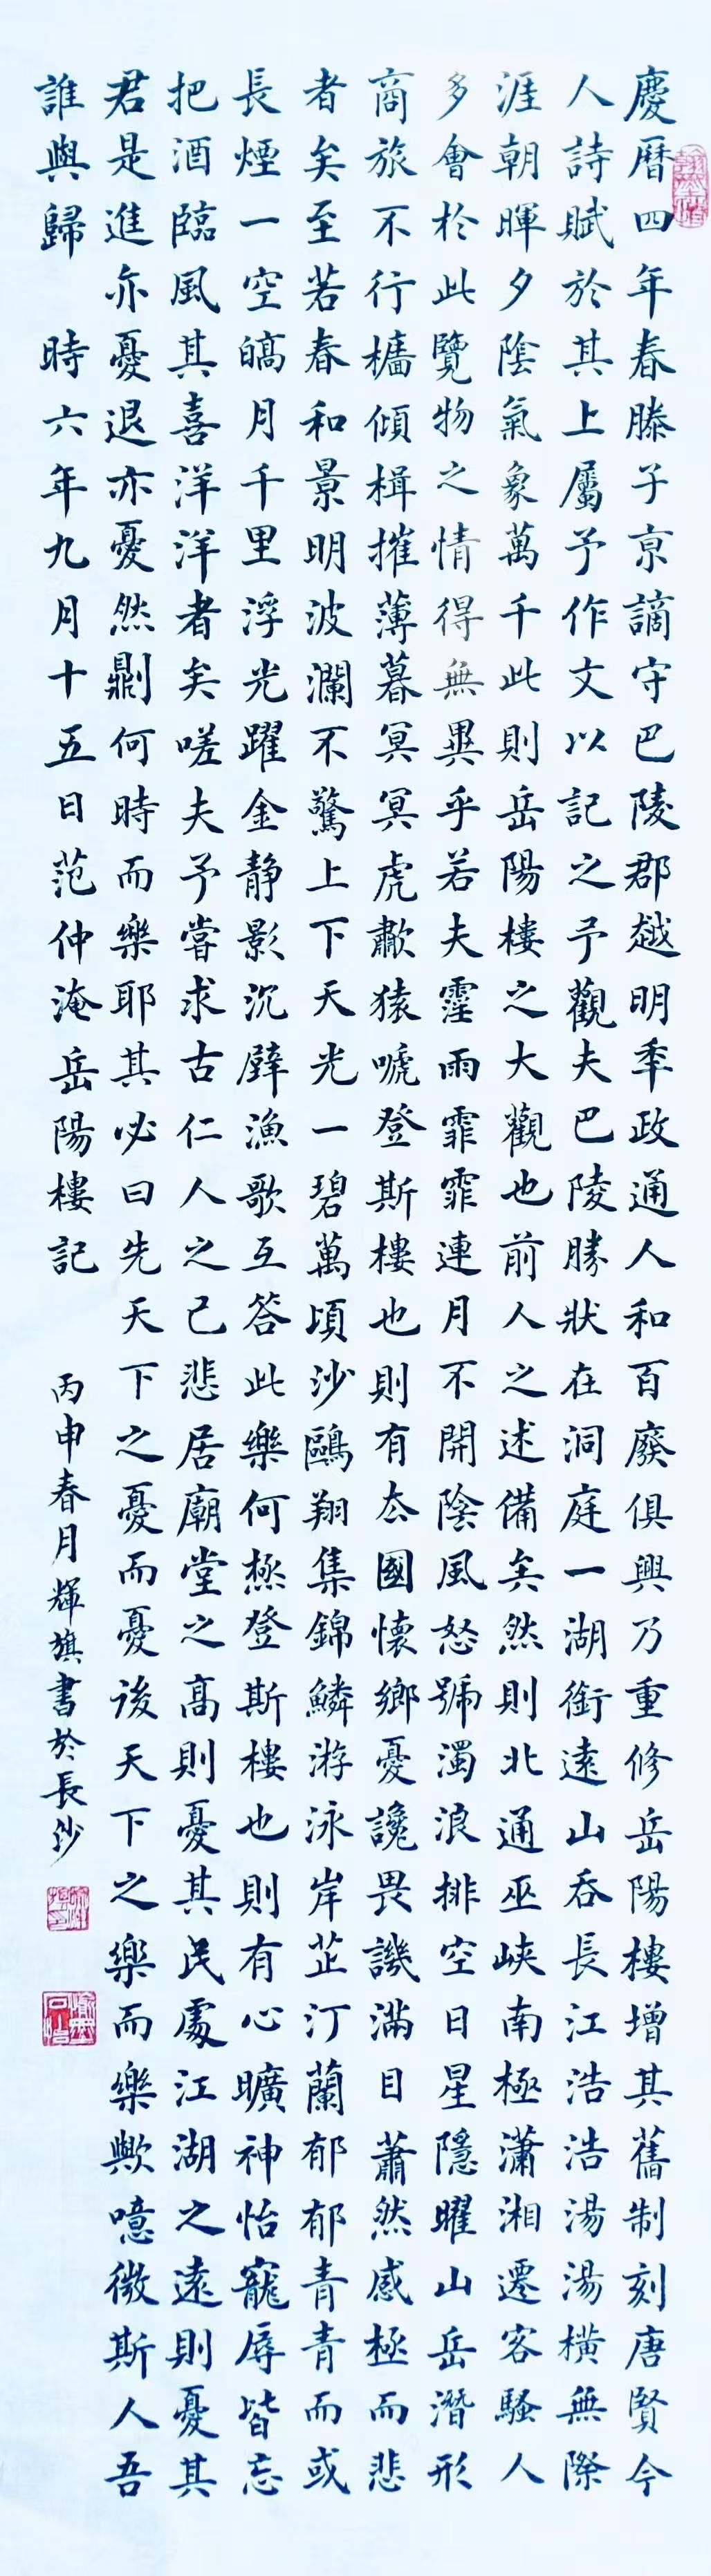 慶曆四年春滕子京謫守巴陵郡越明年政通人和百廢俱興乃重修岳陽樓增其舊制刻唐賢今
人詩賦於其上屬予作文以記之予觀夫巴陵勝狀在洞庭一湖銜遠山吞長江浩浩湯湯橫無際
涯朝暉夕陰氣象萬千此則岳陽樓之大觀也前人之述備矣然則北通巫峽南極瀟湘遷客騷人
多會於此覽物之情得無異乎若夫霪雨霏霏連月不開陰風怒號濁浪排空日星隱曜山岳潛形
商旅不行檣傾楫摧薄暮冥冥虎歗猿嗁登斯樓也則有厺國懷鄉憂讒畏譏滿目蕭然感極而悲
者矣至若春和景明波瀾不驚上下天光一碧萬頃沙鷗翔集錦鱗游泳岸芷汀蘭郁郁青青而或
長煙一空皜月千里浮光躍金静影沉璧漁歌互答此樂何極登斯樓也則有心曠神怡寵辱皆忘
把酒臨風其喜洋洋者矣嗟夫予嘗求古仁人之己悲居廟堂之高則憂其民處江湖之遠則憂其
君是進亦憂退亦憂然鼎何時而樂耶其必曰先天下之憂而憂後天下之樂而樂歟噫微斯人吾
誰與歸 時六年九月十五日范仲淹岳陽樓記 丙申春月輝旗書於長沙